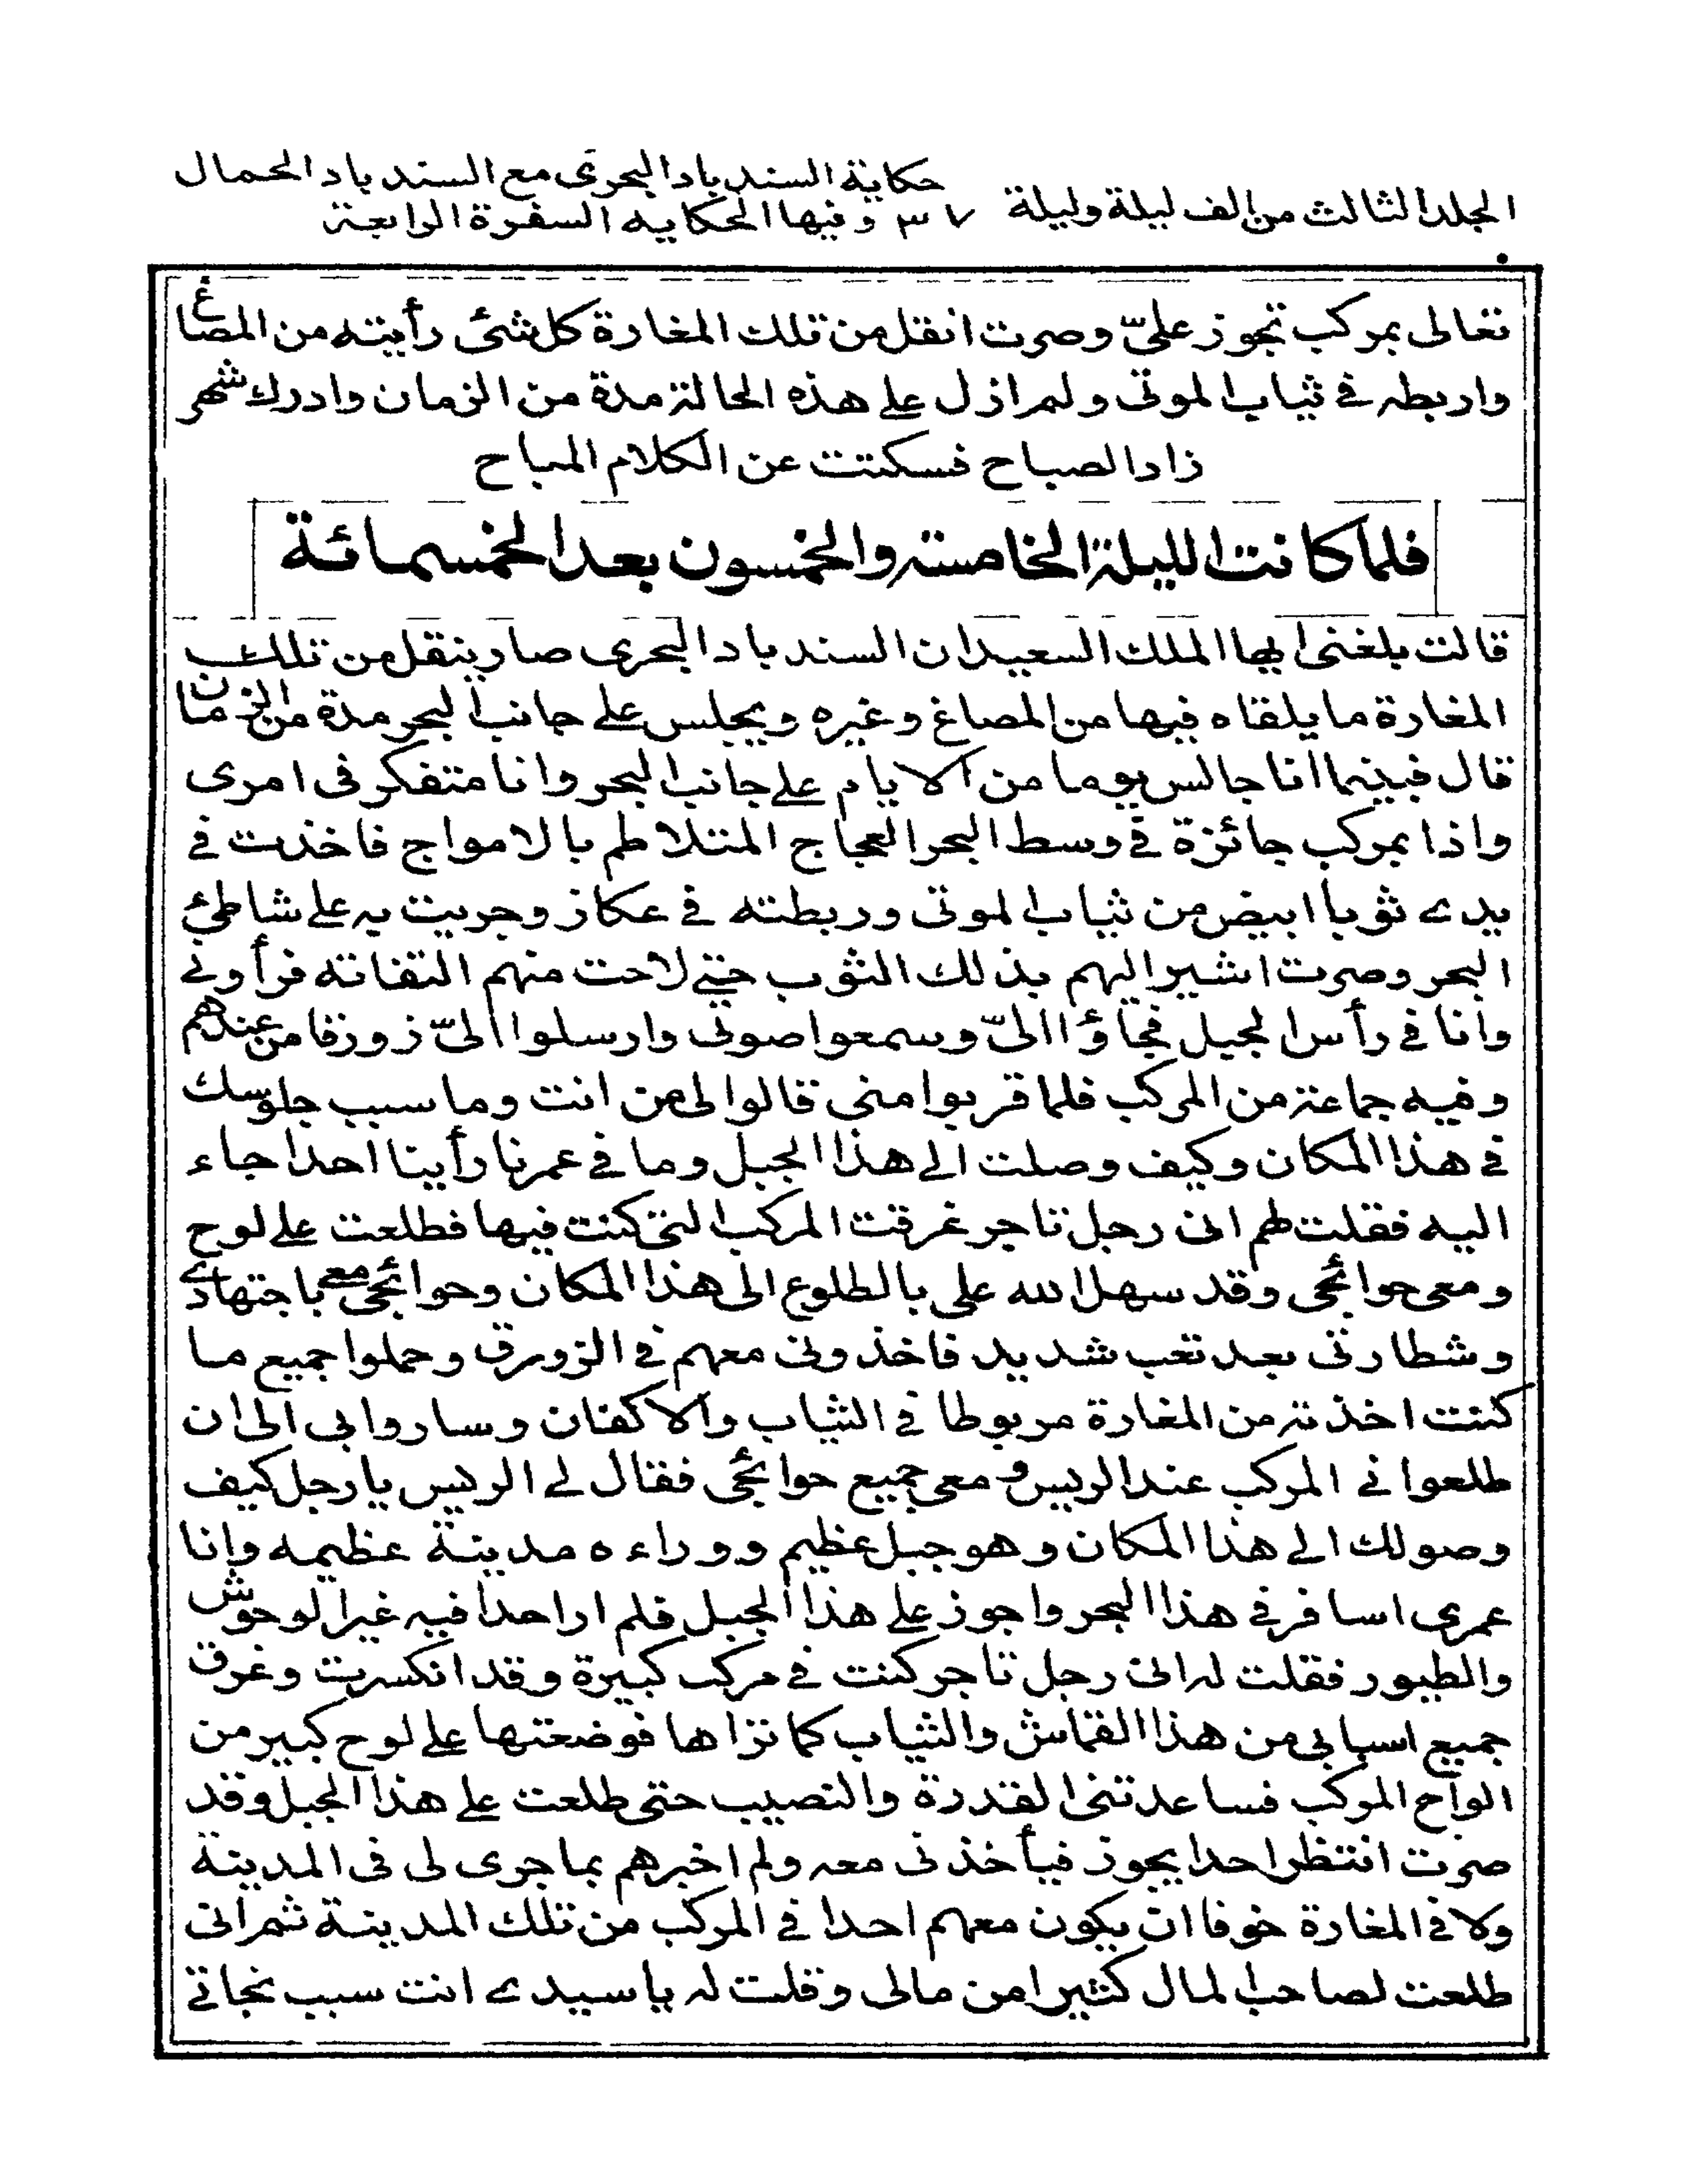 المجلد الثالث من الف ليلة وليلة ٣٧ حكاية السندباد البحرى مع السندباد الحمال
وفيها الحكايه السفرة الرابعة
تعالى بمركب تجوز علىّ وصرت انقل من تلك المغارة كل شئ رأيته من المصاغ
واربطه فى ثياب الموتى ولم ازل على هذه الحالة مدة من الزمان وادرك شهر
زاد الصباح فسكتت عن الكلام المباح
فلما كانت الليلة الخامسة والخمسون بعد الخمسمائة
قالت بلغنى ايها الملك السعيد ان السندباد البحرى صار ينقل من تلك
المغارة ما يلقاه فيها من المصاغ وغيره ويجلس على جانب البحر مدة من الزمان
قال فبينما انا جالس يوما من الايام على جانب البحر وانا متفكر فى امرى
واذا بمركب جائزة فى وسط البحر العجاج المتلاطم بالامواج فاخذت فى
يدى ثوبا ابيض من ثياب الموتى وربطته فى عكاز وجريت به على شاطئ
البحر وصرت اشير اليهم بذلك الثوب حتى لاحت منهم التفاتة فرأونى
وانا فى رأس الجبل فجاؤا الىّ وسمعوا صوتى وارسلوا الىّ زورقا من عندهم
وفيه جماعة من المركب فلما قربوا منى قالوا لى من انت وما سبب جلوسك
فى هذا المكان وكيف وصلت الى هذا الجبل وما فى عمرنا رأينا احدا جاء
اليه فقلت لهم انى رجل تاجر غرقت المركب التى كنت فيها فطلعت على لوح
ومعى حوائجى وقد سهل الله على بالطلوع الى هذا المكان وحوائجى معى باجتهادى
وشطارتى بعد تعب شديد فاخذونى معهم فى الزورق وحملوا جميع ما
كنت اخذته من المغارة مربوطا فى الثياب والاكفان وساروا بى الى ان
طلعوا نى المركب عند الريس ومعى جميع حوائجى فقال لى الريس يا رجل كيف
وصولك الى هذا المكان وهو جبل عظيم ووراءه مدينة عظيمه وانا
عمرى اسافر فى هذا البحر واجوز على هذا الجبل فلم ار احدا فيه غير الوحوش
والطيور فقلت له انى رجل تاجر كنت فى مركب كبيرة وقد انكسرت وغرق
جميع اسبابى من هذا القماش والثياب كما تراها فوضعتها على لوح كبير من
الواح المركب فساعدتنى القدرة والنصيب حتى طلعت على هذا الجبل وقد
صرت انتظر احدا يجوز فيأخذنى معه ولم اخبرهم بما جرى لى فى المدينة
ولا فى المغارة خوفا ان يكون معهم احدا فى المركب من تلك المدينة ثم انى
طلعت لصاحب المال كثيرا من مالى وقلت له يا سيدى انت سبب نجاتى